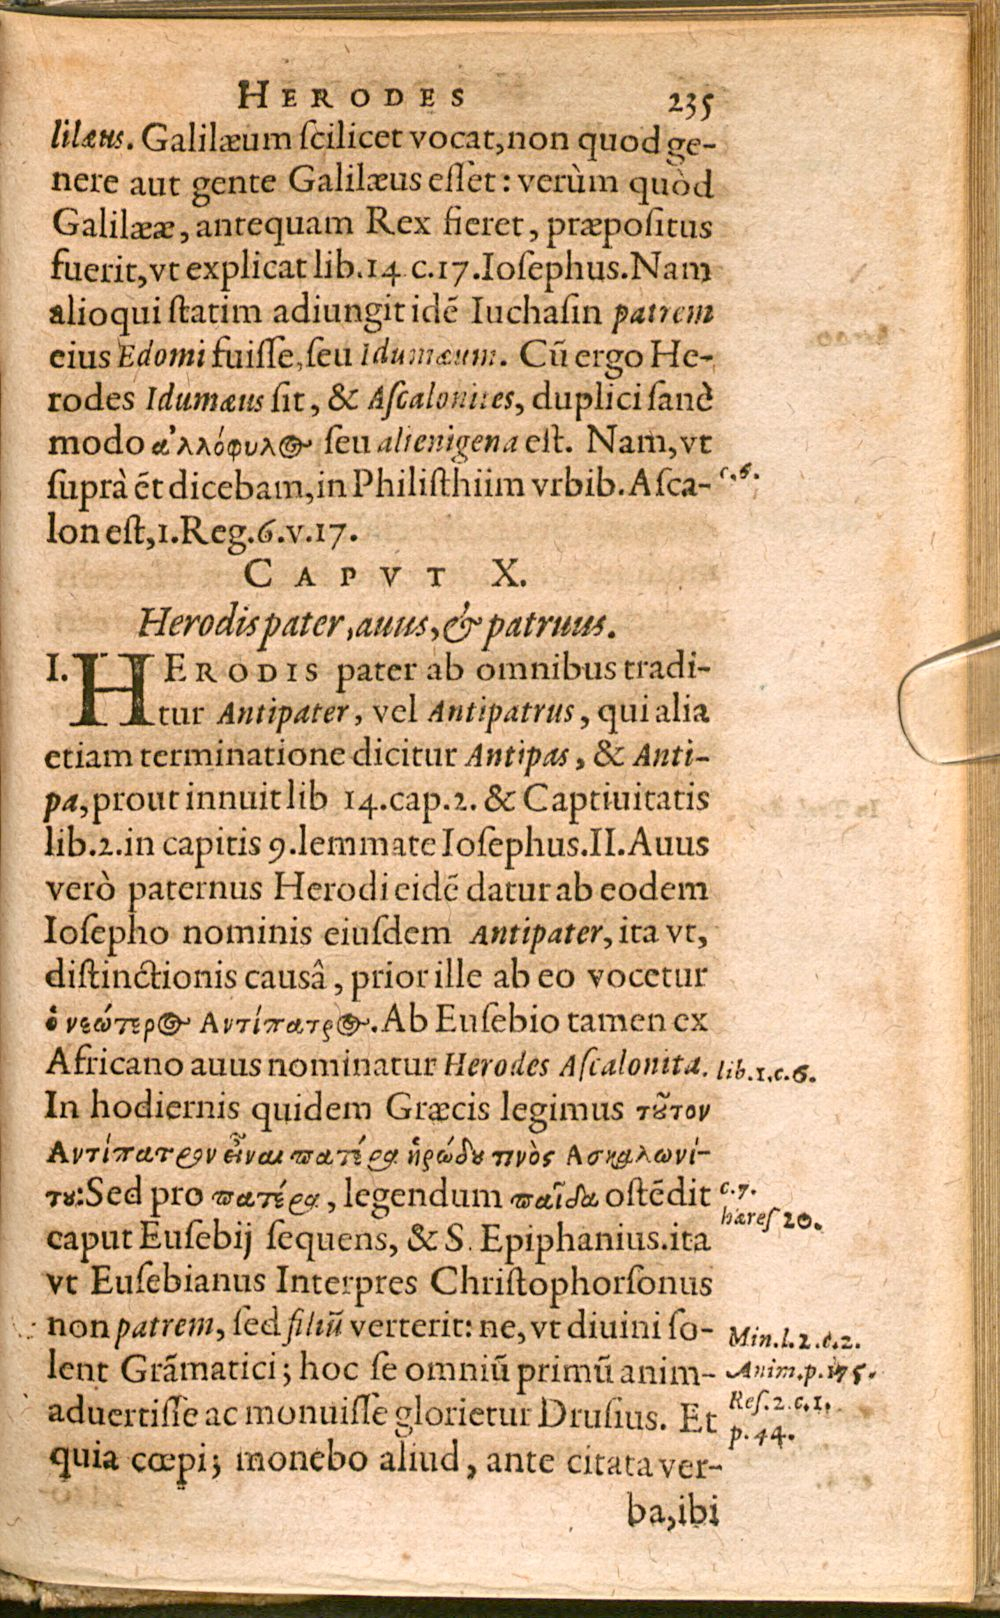 HERODES 235
lilæus. Galilæum ſcilicet vocat, non quod ge-
nere aut gente Galilæus eſſet: verùm quòd
Galilææ, antequam Rex fieret, præpoſitus
fuerit, vt explicat lib.14 c.17. Ioſephus. Nam
alioqui ſtatim adiungit idē Iuchaſin patrem
eius Edomi fuiſſe, ſeu Idumæum. Cū ergo He-
rodes Idumæus ſit, & Aſcalonites, duplici ſanè
modo ἀλλόφυλος ſeu alienigena eſt. Nam, vt
ſuprà ēt dicebam, in Philiſthiim vrbib. Aſca- c.6.
lon eſt, 1. Reg. 6. v. 17.
CAPVT X.
Herodis pater, auus, & patruus.
I. HERODIS pater ab omnibus tradi-
tur Antipater, vel Antipatrus, qui alia
etiam terminatione dicitur Antipas, & Anti-
pa, prout innuit lib 14. cap. 2. & Captiuitatis
lib. 2. in capitis 9. lemmate Ioſephus. II. Auus
verò paternus Herodi eidē datur ab eodem
Ioſepho nominis eiuſdem Antipater, ita vt,
diſtinctionis causâ, prior ille ab eo vocetur
ὁ νεώτερος Αντίπατρος. Ab Euſebio tamen ex
Africano auus nominatur Herodes Aſcalonita. lib.1.c.6.
In hodiernis quidem Græcis legimus τοῦτον
Αντίπατρον εἶναι πατέρα ἡρώδου τινὸς Ασκαλωνί-
του: Sed pro πατέρα, legendum παῖδα oſtēdit c.7.
hæreſ 20.
caput Euſebij ſequens, & S. Epiphanius. ita
vt Euſebianus Interpres Chriſtophorſonus
non patrem, ſed filiū verterit: ne, vt diuini ſo- Min.l.2.c.2.
lent Grāmatici; hoc ſe omniū primū anim- Anim.p.175.
aduertiſſe ac monuiſſe glorietur Druſius. Et Reſ.2.c.1.
p.44.
quia cœpi; monebo aliud, ante citata ver-
ba, ibi